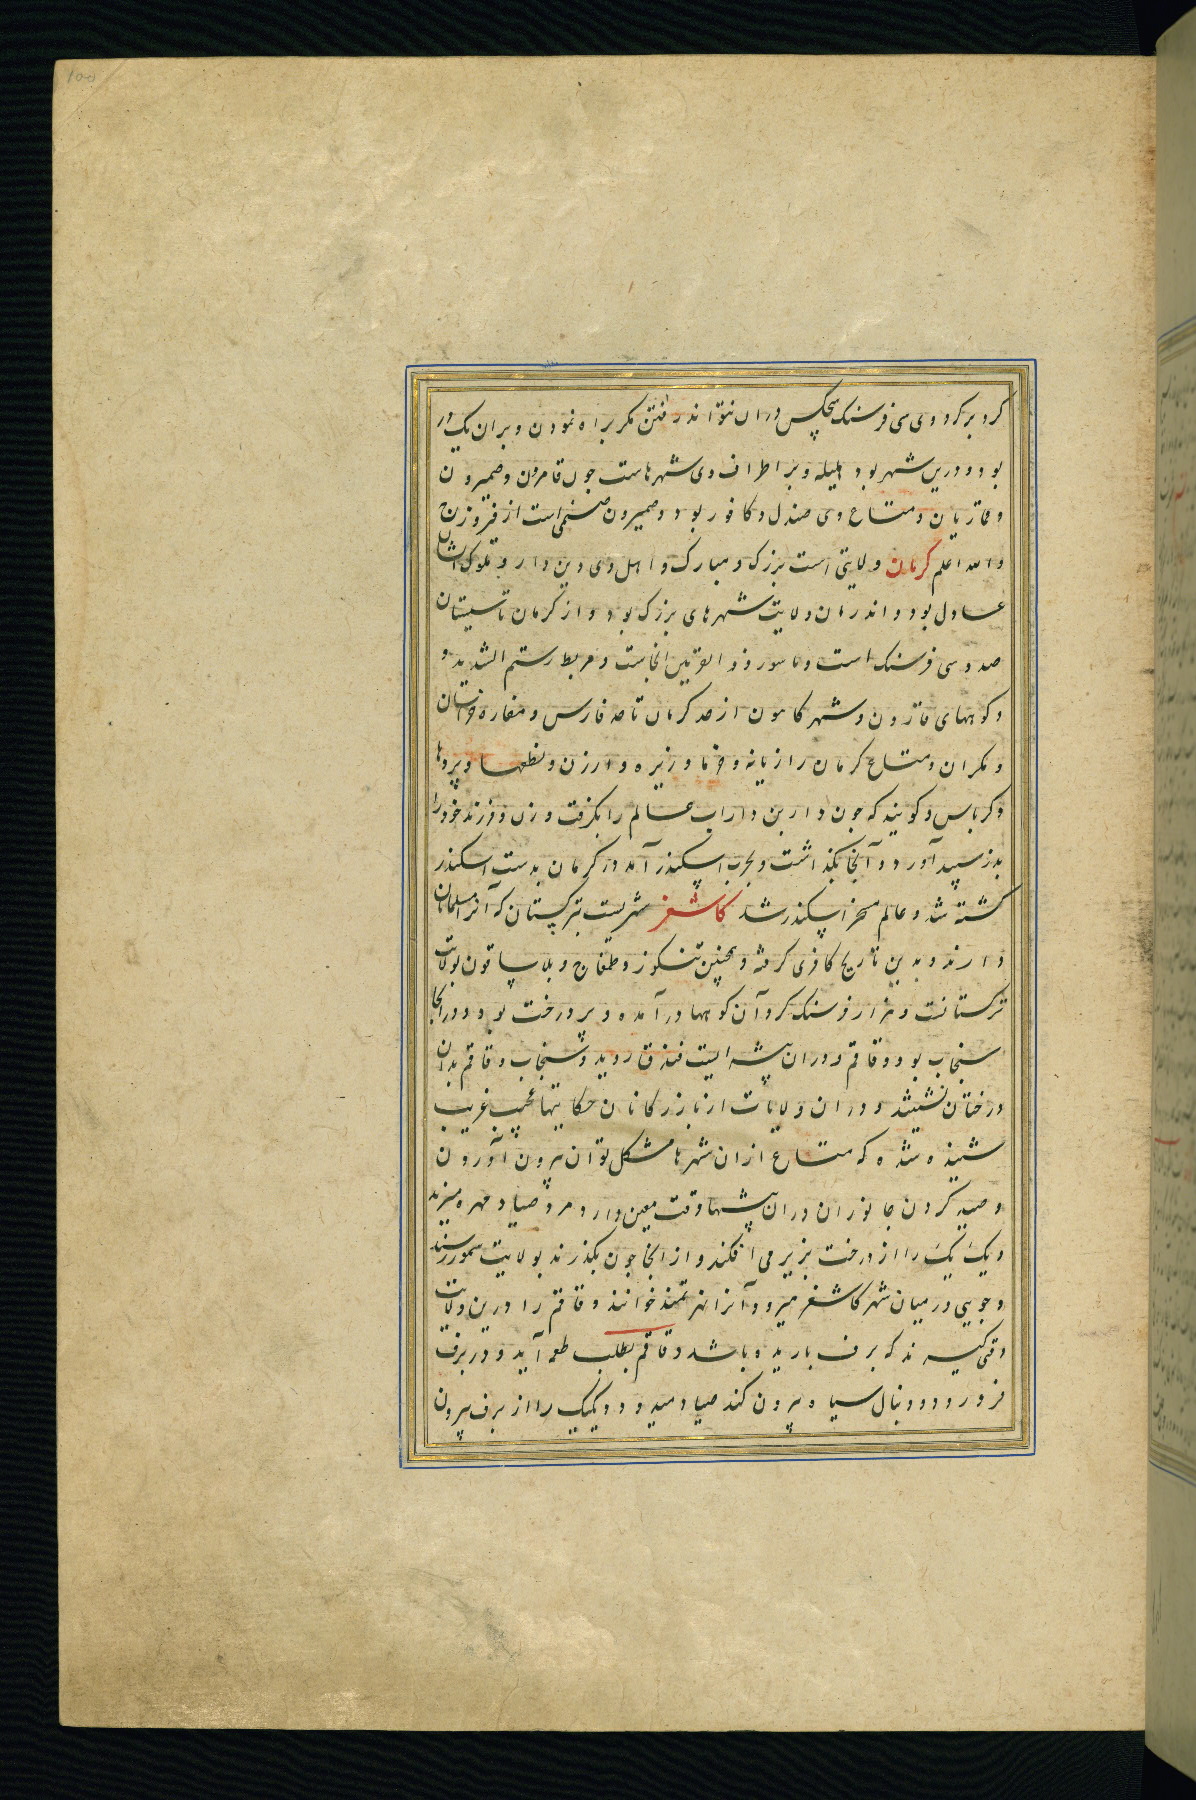 کرد بر کرد وی سی فرسنک هیچکس دران نتواند رفتن مکر براه نمودن و بران یک در
بود و درین شهر بود هلیله و بر اطراف وی شهرهاست چون قامرون و صمیرون
و متاع وی صندل و کافور بود و صمیرون صنمی است از
والله اعلم کرمان ولایتی است بزرک و مبارک و اهل وی دین دار و ملوک ایشان
عادل بود و اندرمان ولایت شهرهای بزرک بود و از کرمان تا سیستان
صد و سی فرسنک است و ذو القرنین انجاست و مربط رستم الشدید و
و کوههای قارون و شهر کامون از حد کرمان تا حد فارس و مفازه خراسان
و مکران و متاع کرمان رازیانه و خرما و زیره و ارزن و نطعها و بردها
و کرباس و کویند که جون دارا بن داراب عالم را بکرفت و زن و فرزند خود را
بدز سپید آورد و آنجا بکذاشت و بحرب اسکندر آمد در کرمان بدست اسکندر
کشته شد و عالم مسخر اسکندر شد کاشغر شهریست بترکستان که آنرا مسلمانان
دارند و بدین تاریخ کافری کرفته و همچنین تنکوز و طمغاج و بلاساقون بولایت
ترکستانست و هزار فرسنک کرد آن کوهها درآمده و پر درخت بود و در انجا
سنجاب بود و قاقم و دران بیشه ایست فندق روید و سنجاب و قاقم بدان
درختان نشینند و دران ولایات از بازرکانان حکایتها عجیب غریب
شنیده شده که متاع ازان شهرها مشکل توان بیرون آوردن
و صید کردن جانوران دران بیشها وقت معین دارد مرد صیاد مهره میزند
و یک یک را از درخت بزیر می افکند و از انجا جون بکذرند بولایت سمور رسند
و جویی درمیان شهر کاشغر میرود آنرا نهر تمند خوانند و قاقم را درین ولایت
وقتی کیرند که برف باریده باشد و قاقم بطلب طعمه آید و در برف
فرو رود و دنبال سیاه بیرون کند صیاد میدود و یکیک را از برف بیرون